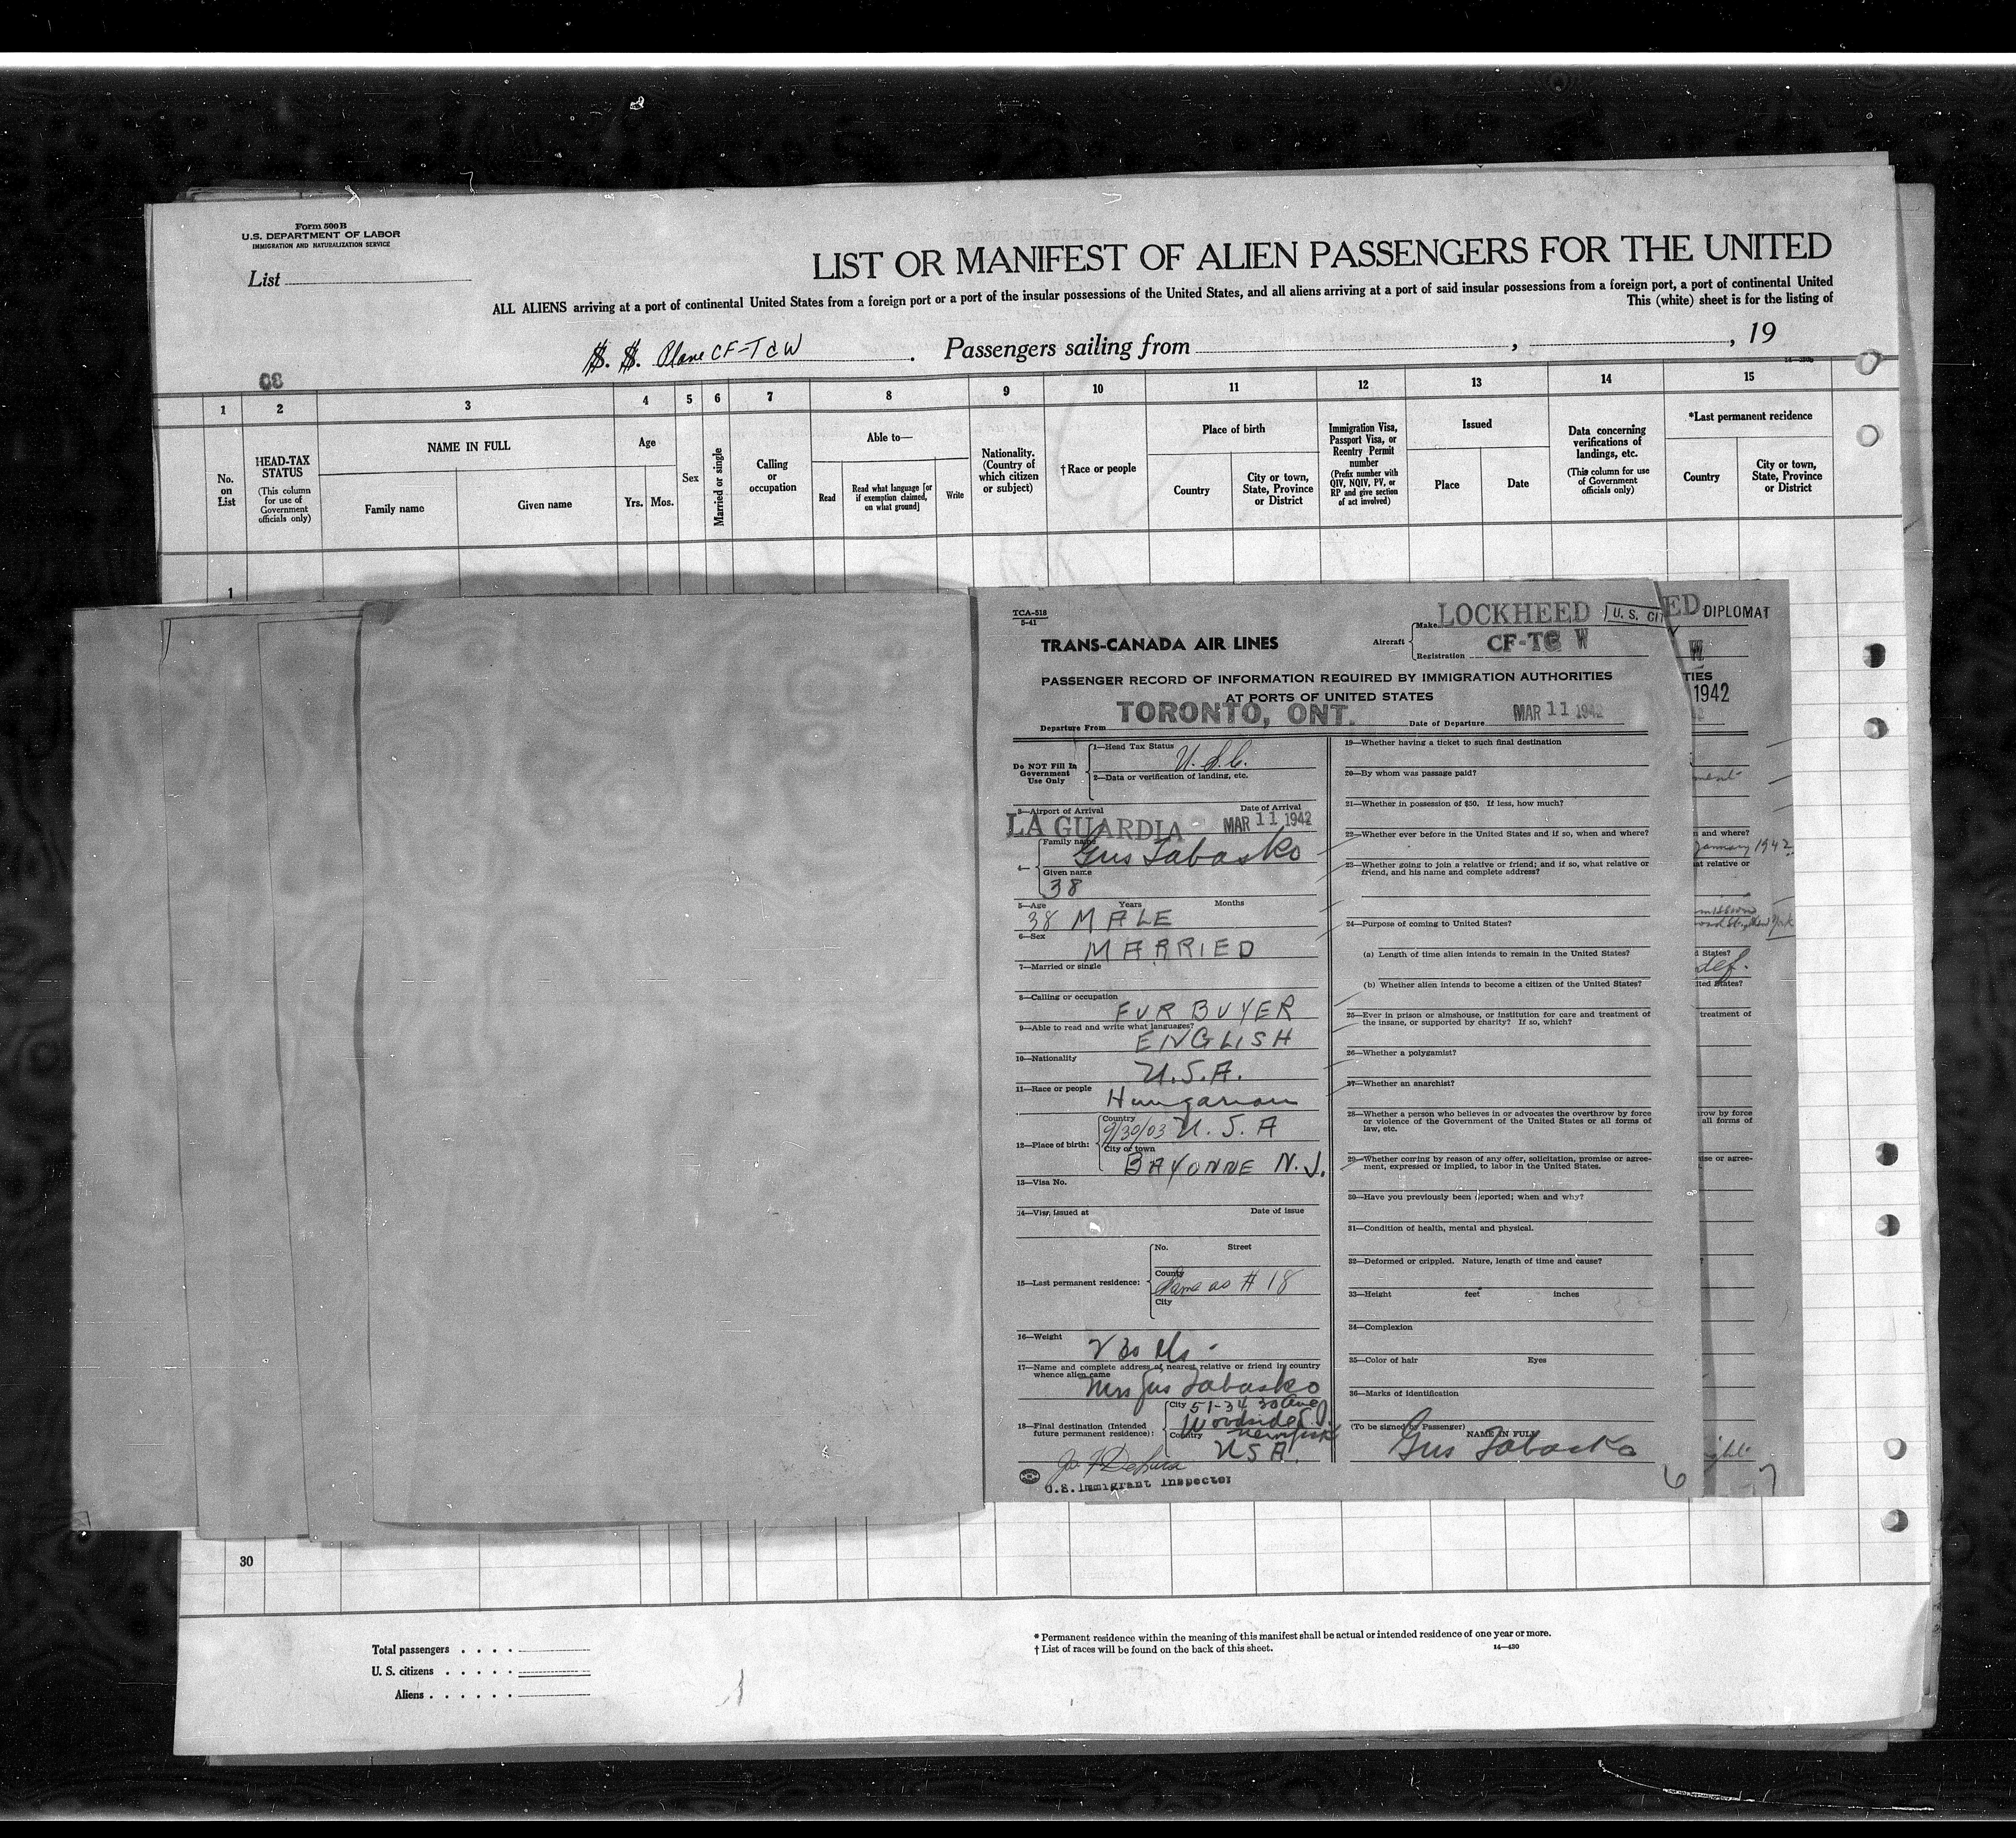 Form 500 B
U.S. DEPARTMENT OF LABOR
IMMIGRATION AND NATURALIZATION SERVICE
List
LIST OR MANIFEST OF ALIEN PASSENGERS FOR THE UNITED
ALL ALIENS arriving at a port of continental United States from a foreign port or a port of the insular possessions of the United States, and all aliens arriving at a port of said insular possessions from a foreign port, a port of continental United
This (white) sheet is for the listing of
S. S. Plane CF-TCW . Passengers sailing from , , 19
30
1 2 3 4 5 6 7 8 9 10 11 12 13 14 15
No. on List
HEAD-TAX STATUS
(This column for use of Government officials only)
NAME IN FULL
Family name
Given name
Age
Yrs. Mos.
Sex
Married or single
Calling or occupation
Able to—
Read
Read what language [or if exemption claimed, on what ground]
Write
Nationality. (Country of which citizen or subject)
†Race or people
Place of birth
Country
City or town, State, Province or District
Immigration Visa, Passport Visa, or Reentry Permit number
(Prefix number with QIV, NQIV, PV, or RP and give section of act involved)
Issued
Place
Date
Data concerning verifications of landings, etc.
(This column for use of Government officials only)
*Last permanent residence
Country
City or town, State, Province or District
1
TCA-518
5-41
TRANS-CANADA AIR LINES
Aircraft
Make LOCKHEED
U. S. CIT
Registration CF-TC W
PASSENGER RECORD OF INFORMATION REQUIRED BY IMMIGRATION AUTHORITIES
AT PORTS OF UNITED STATES
Departure From TORONTO, ONT.
Date of Departure MAR 11 1942
Do NOT Fill In
Government
Use Only
1—Head Tax Status
U.S.C.
2—Data or verification of landing, etc.
3—Airport of Arrival
Date of Arrival
LA GUARDIA MAR 11 1942
4— Family name
Gus Tabasko
Given name
38
5—Age Years Months
38 MALE
6—Sex
MARRIED
7—Married or single
8—Calling or occupation
FUR BUYER
9—Able to read and write what languages?
ENGLISH
10—Nationality
U.S.A.
11—Race or people
Hungarian
12—Place of birth:
Country
9/30/03 U.S.A
City or town
BAYONNE N.J.
13—Visa No.
14—Visa issued at Date of issue
15—Last permanent residence:
No. Street
County
Same as # 18
City
16—Weight
17—Name and complete address of nearest relative or friend in country
whence alien came
Mrs Gus Tabasko
18—Final destination (Intended
future permanent residence):
City 51-34 30 Ave
Woodside
Country New York
USA.
U.S. Immigrant Inspector
19—Whether having a ticket to such final destination
20—By whom was passage paid?
21—Whether in possession of $50. If less, how much?
22—Whether ever before in the United States and if so, when and where?
23—Whether going to join a relative or friend; and if so, what relative or
friend, and his name and complete address?
24—Purpose of coming to United States?
(a) Length of time alien intends to remain in the United States?
(b) Whether alien intends to become a citizen of the United States?
25—Ever in prison or almshouse, or institution for care and treatment of
the insane, or supported by charity? If so, which?
26—Whether a polygamist?
27—Whether an anarchist?
28—Whether a person who believes in or advocates the overthrow by force
or violence of the Government of the United States or all forms of
law, etc.
29—Whether coming by reason of any offer, solicitation, promise or agree-
ment, expressed or implied, to labor in the United States.
30—Have you previously been deported; when and why?
31—Condition of health, mental and physical.
32—Deformed or crippled. Nature, length of time and cause?
33—Height feet inches
34—Complexion
35—Color of hair Eyes
36—Marks of identification
(To be signed by Passenger)
NAME IN FULL
Gus Tabasko
6
ED DIPLOMAT
W
TIES
1942
ment
n and where?
January 1942
at relative or
d States?
def.
ited States?
treatment of
row by force
all forms of
ise or agree-
?
7
30
Total passengers
U. S. citizens
Aliens
* Permanent residence within the meaning of this manifest shall be actual or intended residence of one year or more.
† List of races will be found on the back of this sheet.
14—430